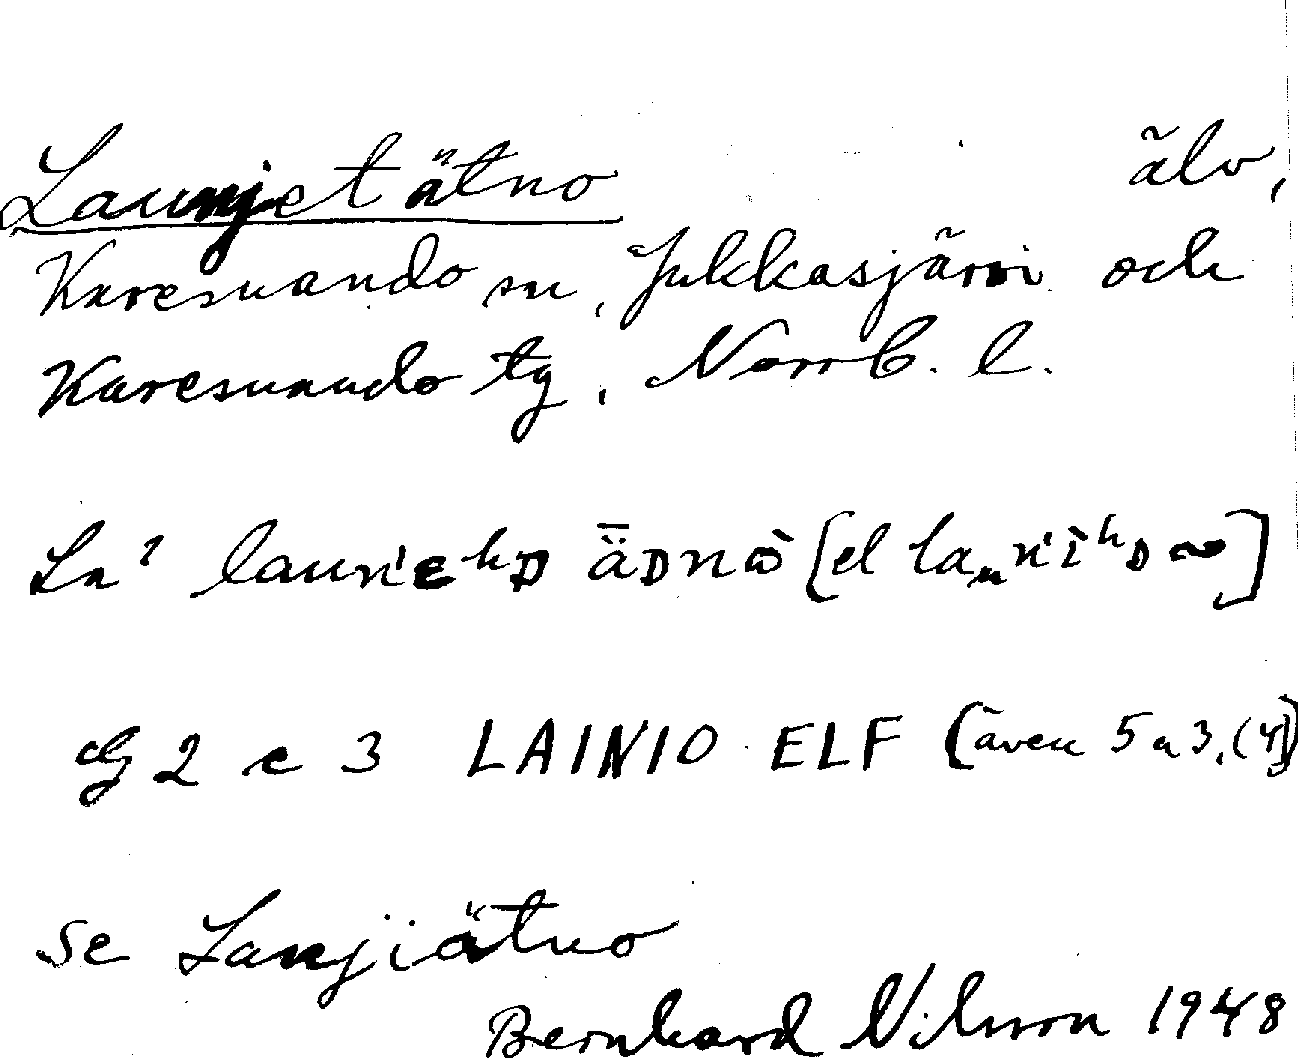 Launjetätno älv,
Karesuando sn, Jukkasjärvi och
Karesuando tg, Norrb. l.
ädnɷ̀ [el
G 2 c 3 LAINIO ELF (även 5 a 3, (4))
se Lanjiätno
Bernhard Nilsson 1948